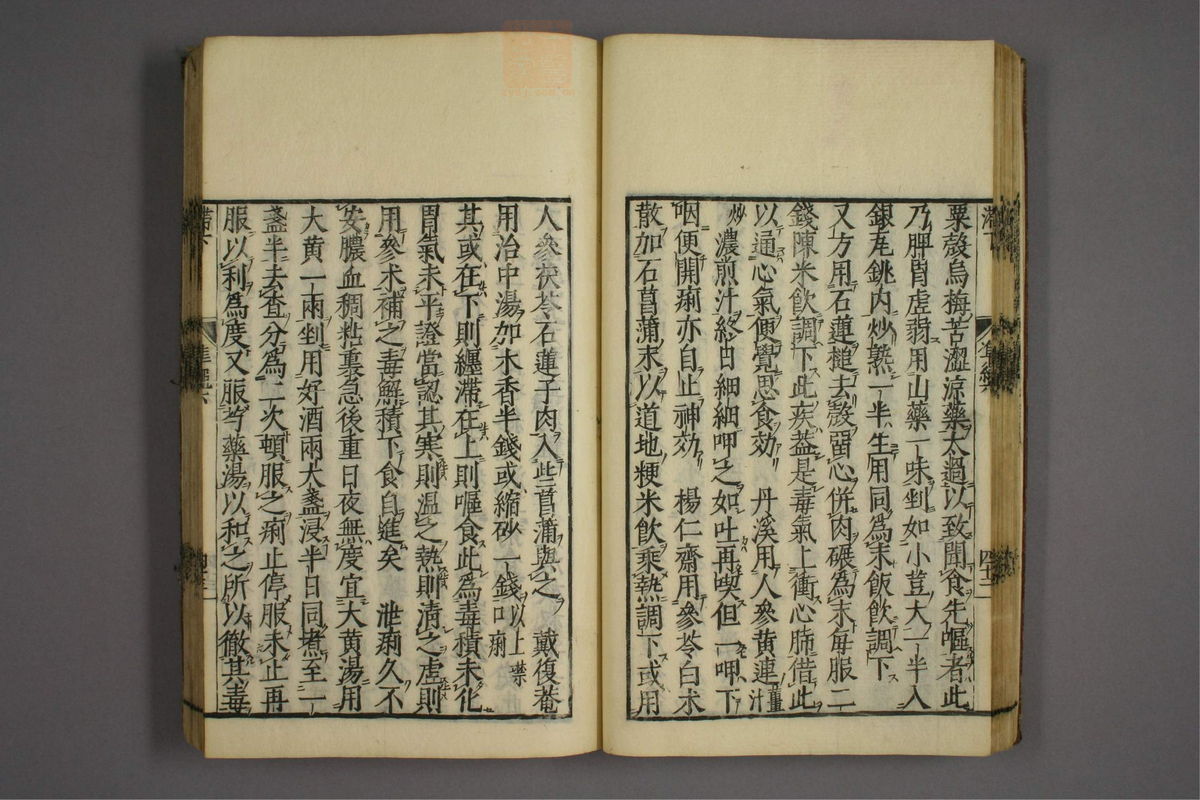 粟殼烏梅苦澀涼藥太過以致聞食先嘔者此
乃脾胃虛弱用山藥一味剉如小荳大一半入
銀瓦銚内炒熟一半生用同為末飯飲調下
又方用石蓮搥去殼留心併肉碾為末毎服二
錢陳米飲調下此疾蓋是毒氣上衝心肺借此
以通心氣便覺思食効 丹溪用人參黄連薑汁
炒濃煎汁終日細細呷之如吐再喫但一呷下
咽便開痢亦自止神効 楊仁齋用參苓白朮
散加石菖蒲末以道地粳米飲乘熱調下或用
人參茯苓石蓮子肉入些菖蒲與之 戴復菴
用治中湯加木香半錢或縮砂一錢以上禁口痢
其或在下則纏滯在上則嘔食此為毒積未化
胃氣未平證當認其寒則温之熱則清之虛則
用參朮補之毒解積下食自進矣 泄痢久不
安膿血稠粘裏急後重日夜無度宜大黄湯用
大黄一兩剉用好酒兩大盞浸半日同煮至一
盞半去査分為二次頓服之痢止停服未止再
服以利為度又服芍藥湯以和之所以徹其毒